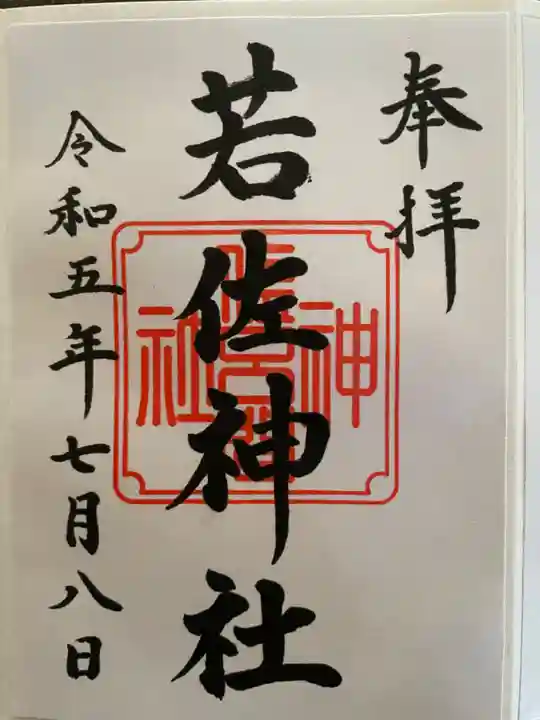 奉拝
若佐神社
令和五年七月八日